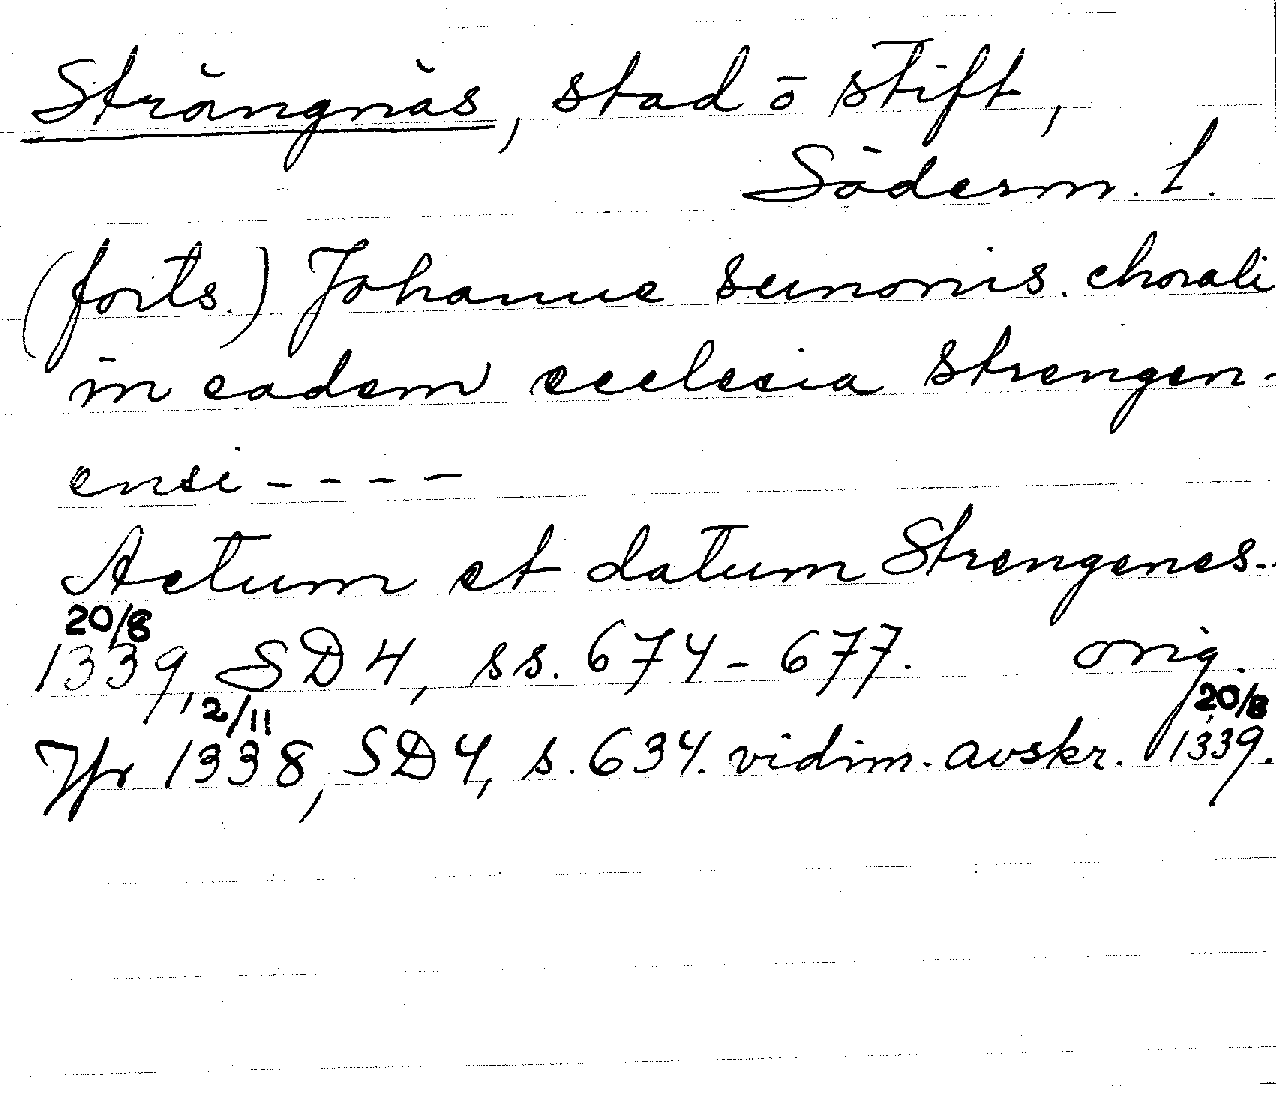 Strängnäs, stad o stift,
Söderm. l.
(forts.) Johanne sunonis. chorali
in eadem ecclesia strengen-
ensi ----
Actum et datum Strengenes..
20/8
1339, SD 4, ss. 674-677. orig.
2/11 20/8
Jfr 1338, SD 4, s. 634. vidim. avskr. 1339.